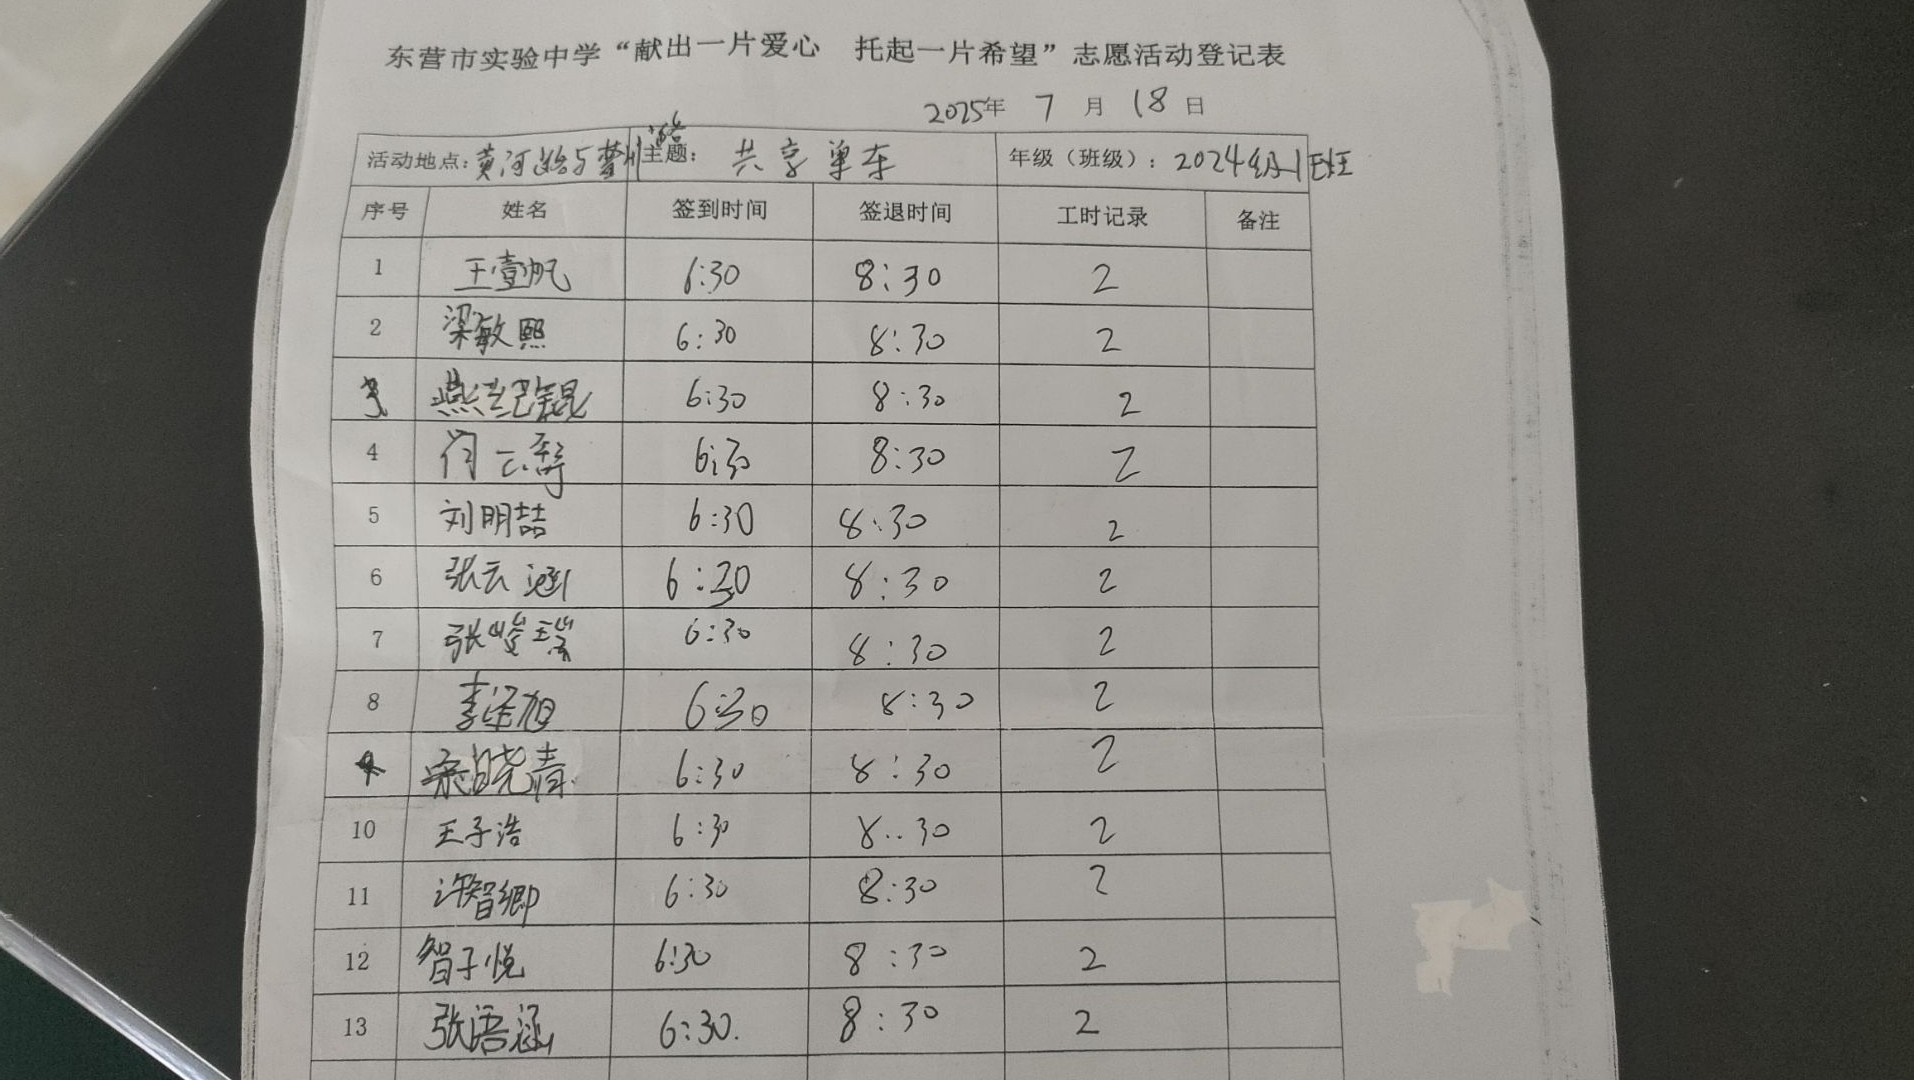 东营市实验中学“献出一片爱心 托起一片希望”志愿活动登记表
2025年 7 月 18 日
活动地点：黄河路与登州路 主题： 共享单车 年级（班级）：2024级11班
序号 姓名 签到时间 签退时间 工时记录 备注
1 王壹帆 6:30 8:30 2
2 梁敏熙 6:30 8:30 2
3 燕纪锟 6:30 8:30 2
4 闫云 6:30 8:30 2
5 刘明喆 6:30 8:30 2
6 张云涵 6:30 8:30 2
7 张峻瑞 6:30 8:30 2
8 李泽旭 6:30 8:30 2
宋晓青 6:30 8:30 2
10 王子浩 6:30 8:30 2
11 许智卿 6:30 8:30 2
12 智子悦 6:30 8:30 2
13 张语涵 6:30. 8:30 2